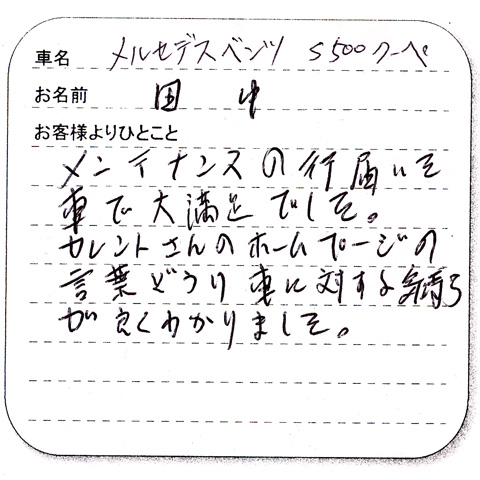 車名 メルセデスベンツ S500クーペ
お名前 田中
お客様よりひとこと
メンテナンスの行届いた
車で大満足でした。
カレントさんのホームページの
言葉どうり車に対する気持ち
が良くわかりました。